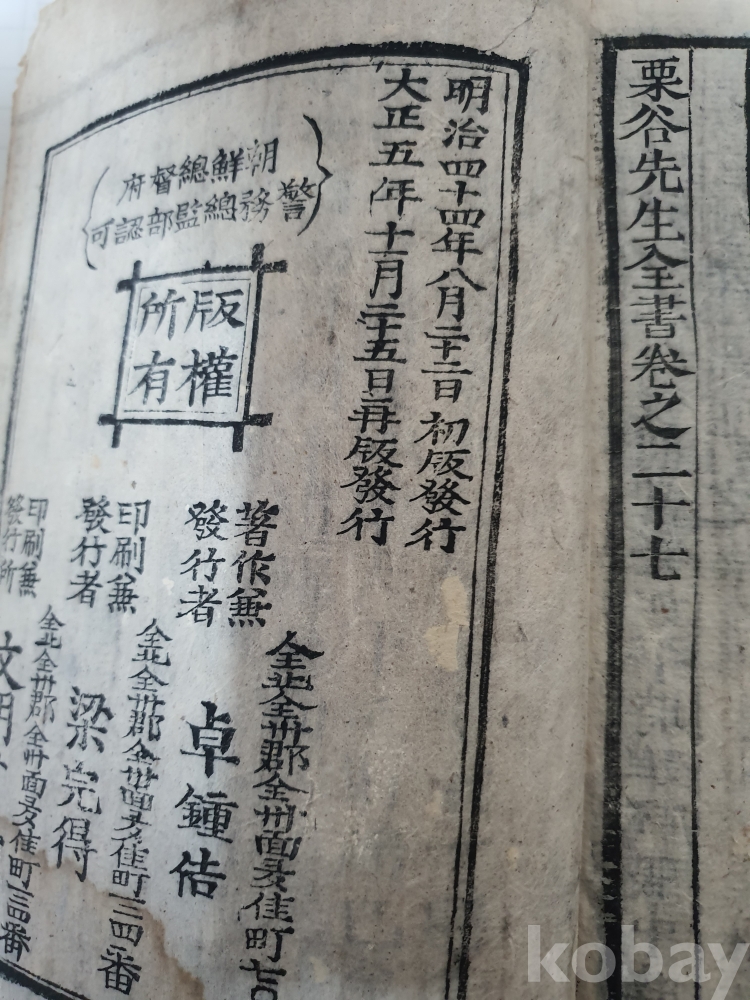 栗谷先生全書卷之二十七
明治四十四年八月二十二日初版發行
大正五年十二月二十五日再版發行
朝鮮總督府
警務總監部認可
版權
所有
著作兼
發行者
全北全州郡全州面多佳町七〇
卓鍾佶
印刷兼
發行者
全北全州郡全州面多佳町一三四番
梁完得
印刷兼
發行所
全北全州郡全州面多佳町一三四番
文明
kobay